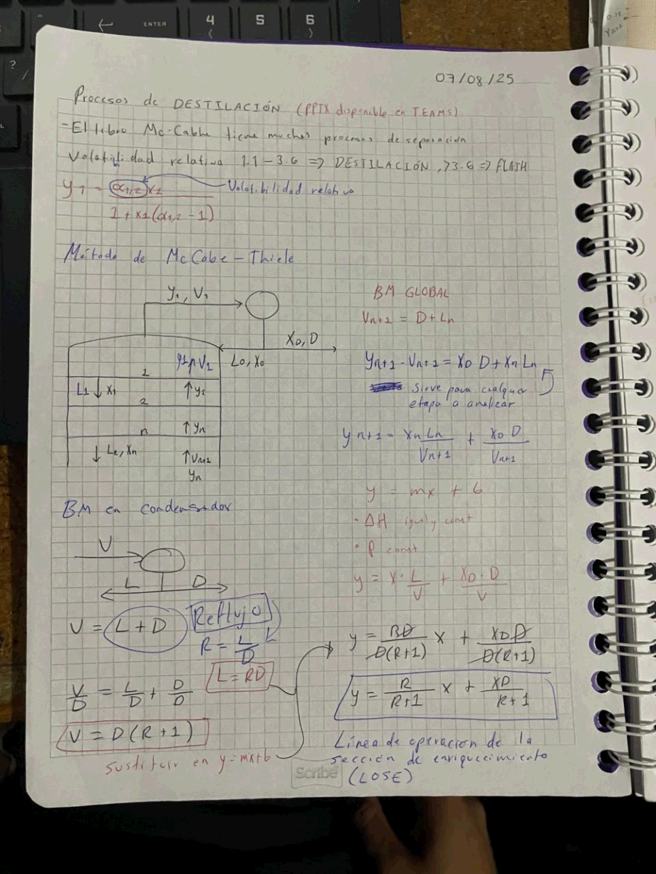 07/08/25
Procesos de DESTILACIÓN (PPTX disponible en TEAMS)
-El libro Mc-Cabbe tiene muchos procesos de separación
Volatilidad relativa 1.1-3.6 => DESTILACIÓN, >3.6 => FLASH
y1 = α1,2 x1 / 1 + x1(α1,2 - 1)
Volatibilidad relativa
Método de McCabe-Thiele
y1, V1
L0, X0
XD, D
1
L1 ↓ X1
↑ y2
2
n
↑ yn
↑ Vn+1
yn
BM GLOBAL
Vn+1 = D + Ln
yn+1 · Vn+1 = XD D + Xn Ln
Sirve para cualquier
etapa a analizar
yn+1 = Xn Ln / Vn+1 + XD D / Vn+1
y = mx + b
· ΔH igual y const
· P const
y = X · L / V + XD · D / V
BM en condensador
V
L D
V = L + D
Reflujo
R = L / D
L = RD
V/D = L/D + D/D
V = D(R+1)
sustituir en y=mx+b
y = RD / D(R+1) x + XD D / D(R+1)
y = R / R+1 x + XD / R+1
Línea de operación de la
sección de enriquecimiento
(LOSE)
Scribe